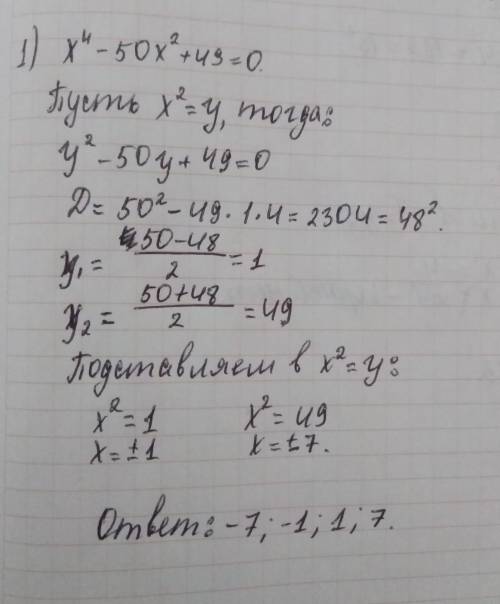 1) x⁴ - 50x² + 49 = 0.
Пусть x² = y, тогда:
y² - 50y + 49 = 0
D = 50² - 49 · 1 · 4 = 2304 = 48².
y₁ = (50 - 48)/2 = 1
y₂ = (50 + 48)/2 = 49
Подставляем в x² = y:
x² = 1 x² = 49
x = ±1 x = ±7.
Ответ: -7; -1; 1; 7.